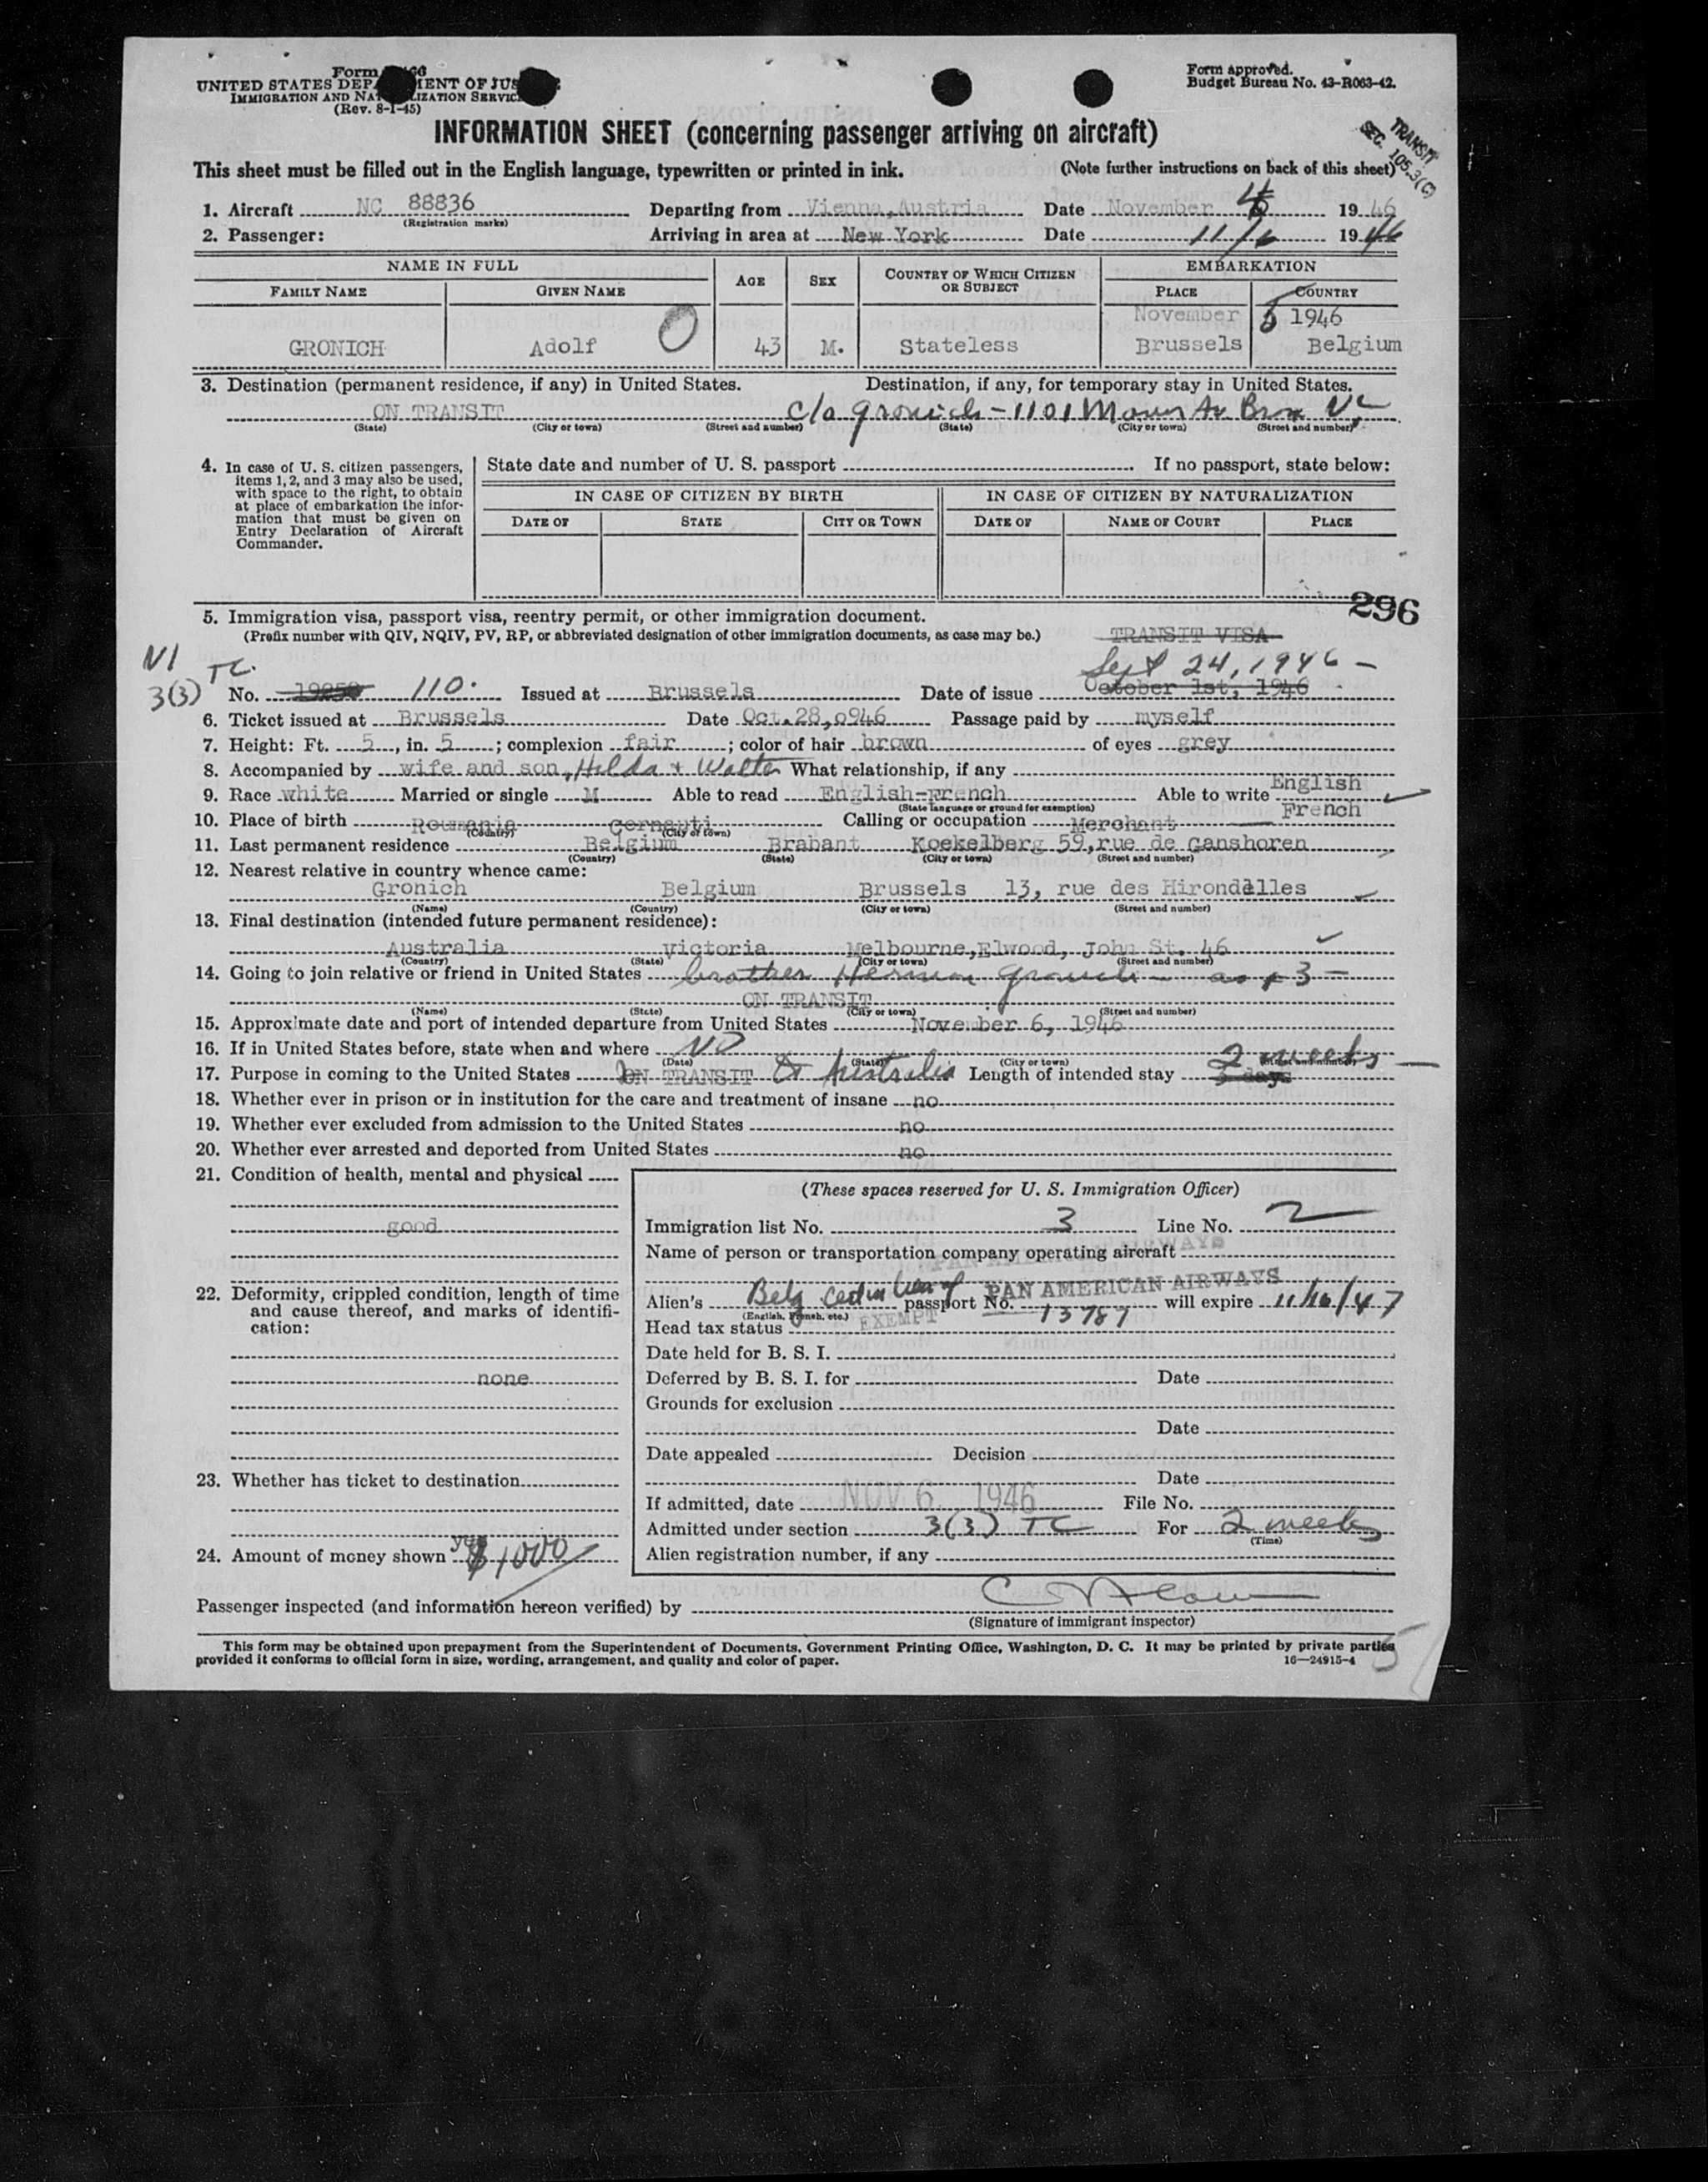 Form approved.
UNITED STATES DEP MENT OF JUS
Budget Bureau No. 43-R063-42.
IMMIGRATION AND NAT LIZATION SERVIC
(Rev. 8-1-45)
INFORMATION SHEET (concerning passenger arriving on aircraft)
TRANSIT
SEC. 105.3(C)
This sheet must be filled out in the English language, typewritten or printed in ink. (Note further instructions on back of this sheet)
1. Aircraft NC 88836 Departing from Vienna,Austria Date November 4 19 46
(Registration marks)
2. Passenger: Arriving in area at New York Date 11/6 1946
NAME IN FULL AGE SEX COUNTRY OF WHICH CITIZEN OR SUBJECT EMBARKATION
FAMILY NAME GIVEN NAME PLACE COUNTRY
November 5 1946
GRONICH Adolf 0 43 M. Stateless Brussels Belgium
3. Destination (permanent residence, if any) in United States. Destination, if any, for temporary stay in United States.
ON TRANSIT c/o Gronich - 1101 Av Brnx
(State) (City or town) (Street and number) (State) (City or town) (Street and number)
4. In case of U. S. citizen passengers, items 1, 2, and 3 may also be used, with space to the right, to obtain at place of embarkation the information that must be given on Entry Declaration of Aircraft Commander.
State date and number of U. S. passport . If no passport, state below:
IN CASE OF CITIZEN BY BIRTH IN CASE OF CITIZEN BY NATURALIZATION
DATE OF STATE CITY OR TOWN DATE OF NAME OF COURT PLACE
296
5. Immigration visa, passport visa, reentry permit, or other immigration document.
(Prefix number with QIV, NQIV, PV, RP, or abbreviated designation of other immigration documents, as case may be.) TRANSIT VISA
VI TC. Sept 24, 1946 -
3(3) No. 19250 110. Issued at Brussels Date of issue October 1st, 1946
6. Ticket issued at Brussels Date Oct.28,0946 Passage paid by myself
7. Height: Ft. 5, in. 5; complexion fair; color of hair brown of eyes grey
8. Accompanied by wife and son, Hilda + Walter What relationship, if any
9. Race white Married or single M Able to read English-French Able to write English
(State language or ground for exemption) French
10. Place of birth Roumania Cernauti Calling or occupation Merchant
(Country) (City or town)
11. Last permanent residence Belgium Brabant Koekelberg 59,rue de Ganshoren
(Country) (State) (City or town) (Street and number)
12. Nearest relative in country whence came:
Gronich Belgium Brussels 13, rue des Hirondelles
(Name) (Country) (City or town) (Street and number)
13. Final destination (intended future permanent residence):
Australia Victoria Melbourne,Elwood, John St, 46
(Country) (State) (City or town) (Street and number)
14. Going to join relative or friend in United States brother Herman Gronich - as # 3 -
ON TRANSIT
(Name) (State) (City or town) (Street and number)
15. Approximate date and port of intended departure from United States November 6, 1946
16. If in United States before, state when and where NO
(Date) (State) (City or town) (Street and number)
17. Purpose in coming to the United States ON TRANSIT to Australia Length of intended stay 3 days 2 weeks -
18. Whether ever in prison or in institution for the care and treatment of insane no
19. Whether ever excluded from admission to the United States no
20. Whether ever arrested and deported from United States no
21. Condition of health, mental and physical
good
22. Deformity, crippled condition, length of time and cause thereof, and marks of identification:
none
23. Whether has ticket to destination
yes
24. Amount of money shown $1000
(These spaces reserved for U. S. Immigration Officer)
Immigration list No. 3 Line No. 2
Name of person or transportation company operating aircraft
PAN AMERICAN AIRWAYS
Alien's Belg passport No. 13787 will expire 11/16/47
(English, French, etc.)
Head tax status EXEMPT
Date held for B. S. I.
Deferred by B. S. I. for Date
Grounds for exclusion
Date
Date appealed Decision
Date
If admitted, date NOV 6 1946 File No.
Admitted under section 3(3) TC For 2 weeks
(Time)
Alien registration number, if any
Passenger inspected (and information hereon verified) by
(Signature of immigrant inspector)
This form may be obtained upon prepayment from the Superintendent of Documents, Government Printing Office, Washington, D. C. It may be printed by private parties
provided it conforms to official form in size, wording, arrangement, and quality and color of paper. 16—24915-4
5